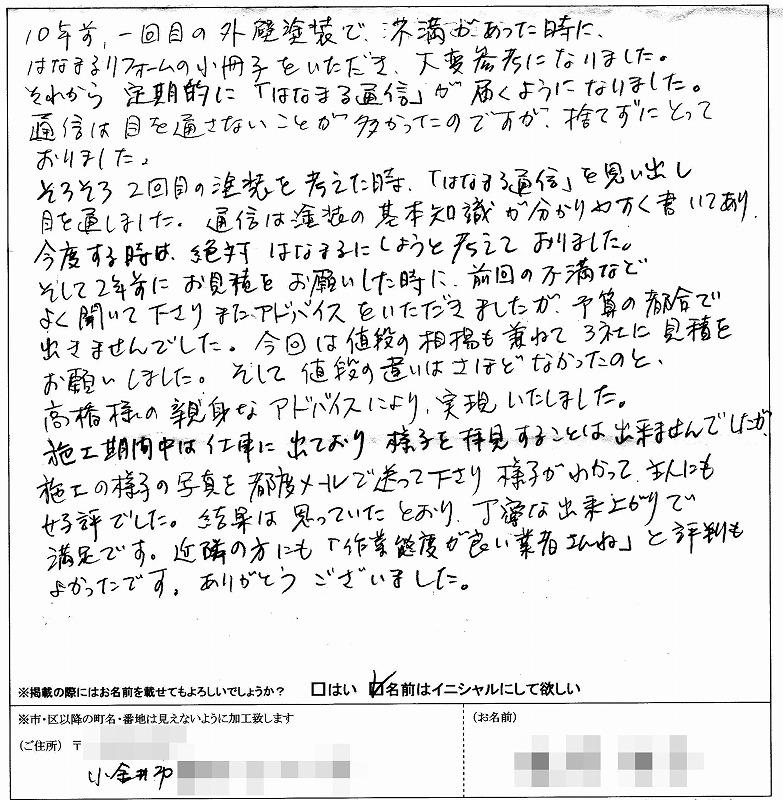 10年前、一回目の外壁塗装で、不満があった時に、
はなまるリフォームの小冊子をいただき、大変参考になりました。
それから定期的に「はなまる通信」が届くようになりました。
通信は目を通さないことが多かったのですが、捨てずにとって
おりました。
そろそろ2回目の塗装を考えた時、「はなまる通信」を見い出し
目を通しました。通信は塗装の基本知識が分かりやすく書いてあり、
今度する時は、絶対はなまるにしようと考えておりました。
そして2年前にお見積をお願いした時に、前回の不満など
よく聞いて下さりまたアドバイスをいただきましたが、予算の都合で
出きませんでした。今回は値段の相場も兼ねて3社に見積を
お願いしました。そして値段の違いはさほどなかったのと、
高橋様の親身なアドバイスにより、実現いたしました。
施工期間中は仕事に出ており様子を拝見することは出来ませんでしたが、
施工の様子の写真を都度メールで送って下さり様子がわかって、主人にも
好評でした。結果は思っていたとおり、丁寧な出来上がりで
満足です。近隣の方にも「作業態度が良い業者さんね」と評判も
よかったです。ありがとうございました。
※掲載の際にはお名前を載せてもよろしいでしょうか？ □はい ☑名前はイニシャルにして欲しい
※市・区以降の町名・番地は見えないように加工致します
(ご住所) 〒
小金井市
(お名前)